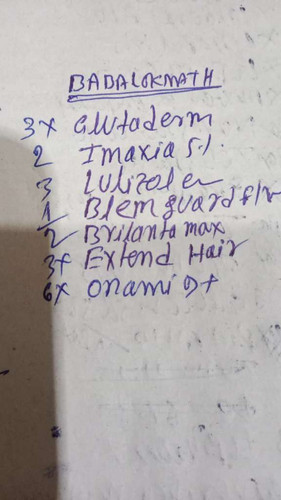 BADALOKMATH
3x Glutaderm
2 Imaxia
3
1 Blemguard
2 Brilanta max
3+ Extend Hair
6x Onami D+